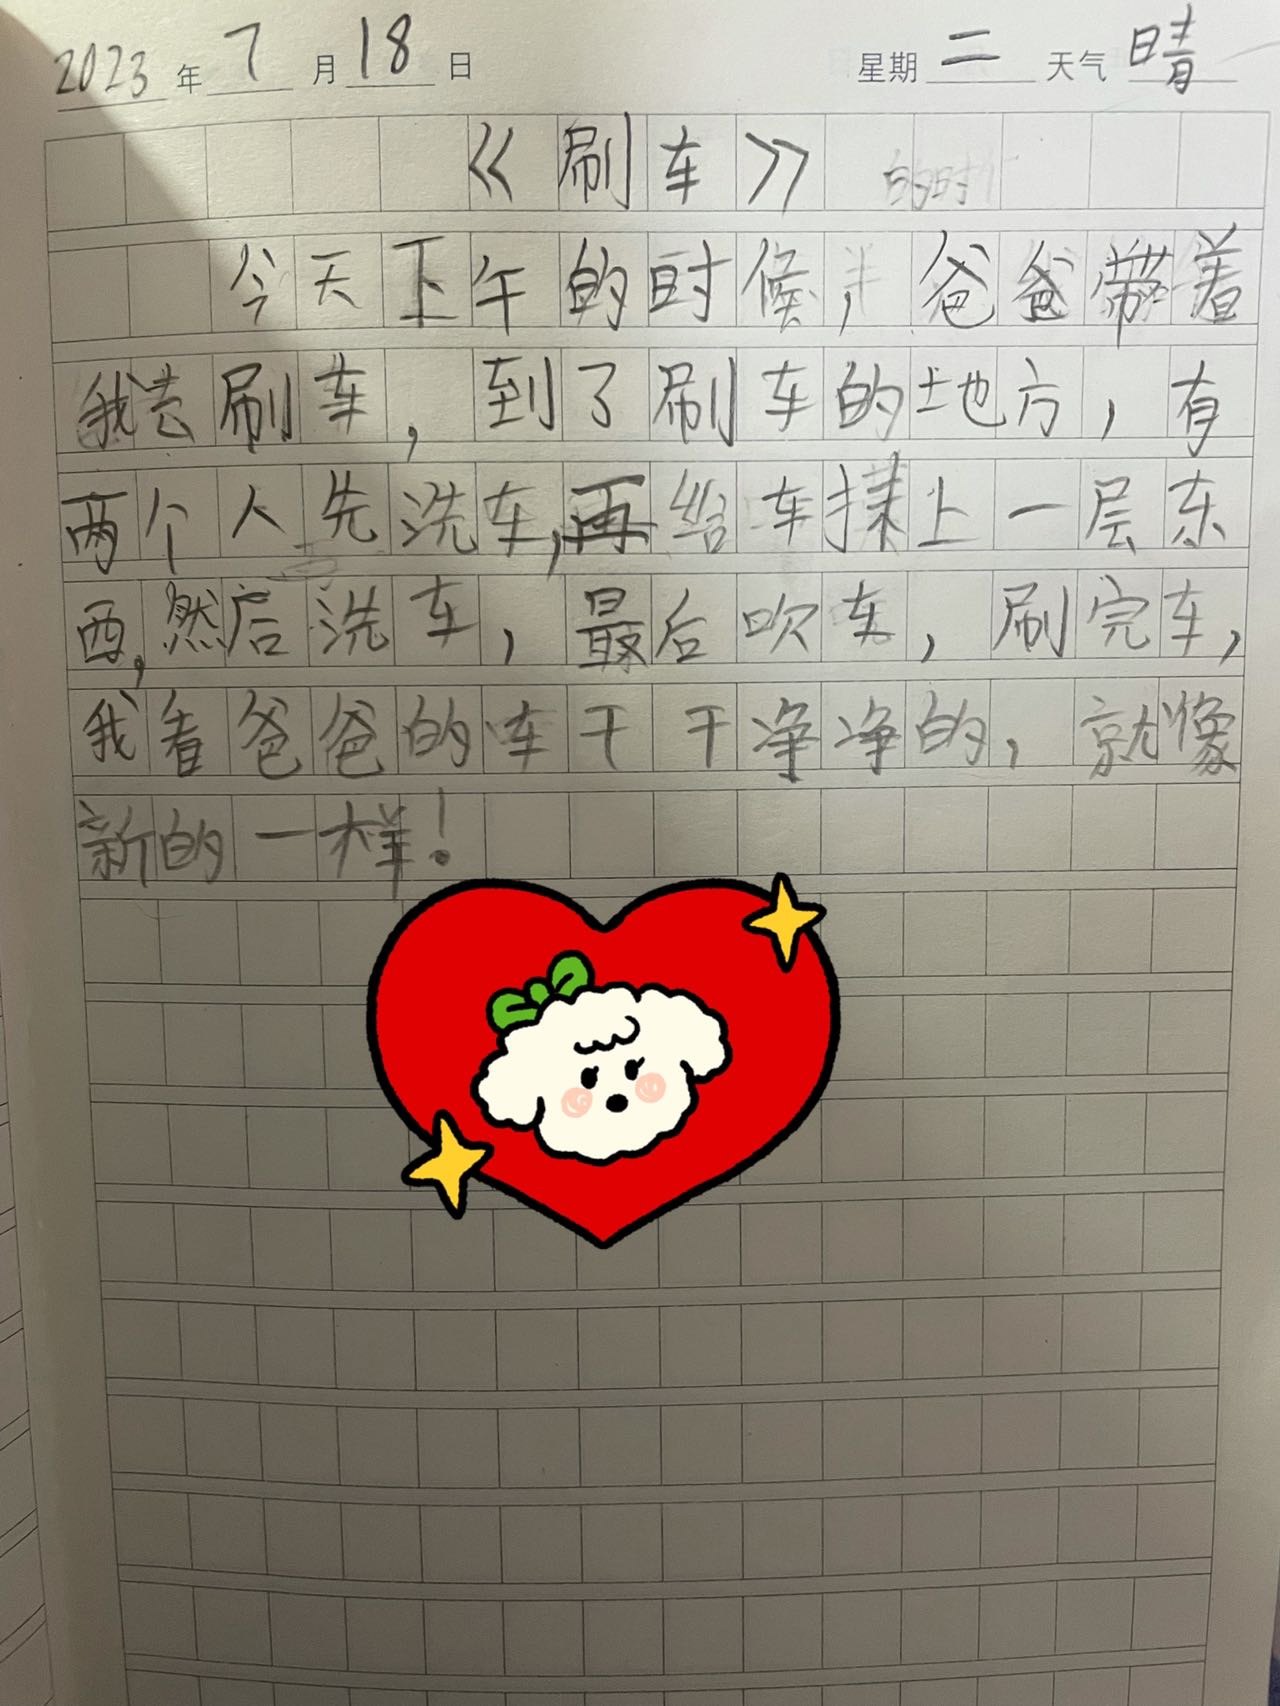 2023年7月18日 星期二 天气晴
《刷车》
今天下午的时候，爸爸带着
我去刷车，到了刷车的地方，有
两个人先洗车，再给车抹上一层东
西，然后洗车，最后吹车，刷完车，
我看爸爸的车干干净净的，就像
新的一样！